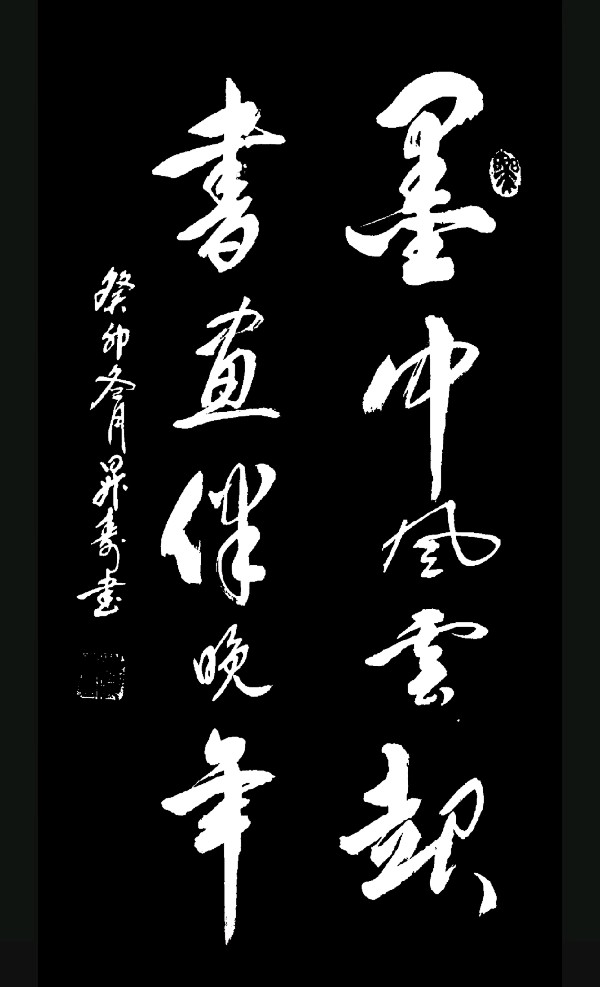 墨中風雲
書畫伴晚年
癸卯冬月昇寿書